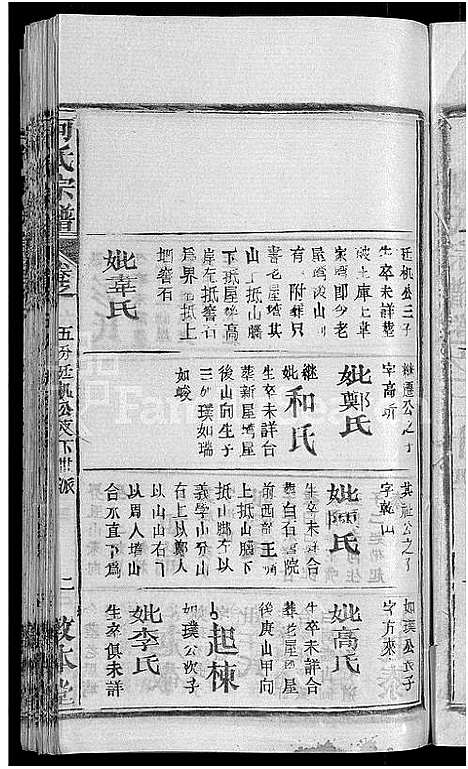 廷机公三子
生卒未詳葬
破土庫上車
家塆即今老
屋塆後山
有一附葬只
書老屋塆其
山上抵山腦
下抵屋後高
岸左抵窨石
爲界右抵上
塆窨石
妣韋氏
字高
妣鄭氏
繼妣和氏
生卒未詳合
葬新屋塆屋
後山向生子
三如璞如瑞
如峻
其祉公之子
字乾山
妣陳氏
生卒未詳合
葬白石書院
前西龍王
上抵山腦下
抵山脚左以
義學山分山
右上以鄭人
以山山右下
以周人墳山
合水直下爲
如璞公長子
字方來
妣高氏
生卒未詳合
葬老屋塆屋
後庚山甲向
起棟
如璞公次子
妣李氏
生卒俱未詳
何氏宗譜
卷之一
五分廷机公支下世派
二
敦本堂